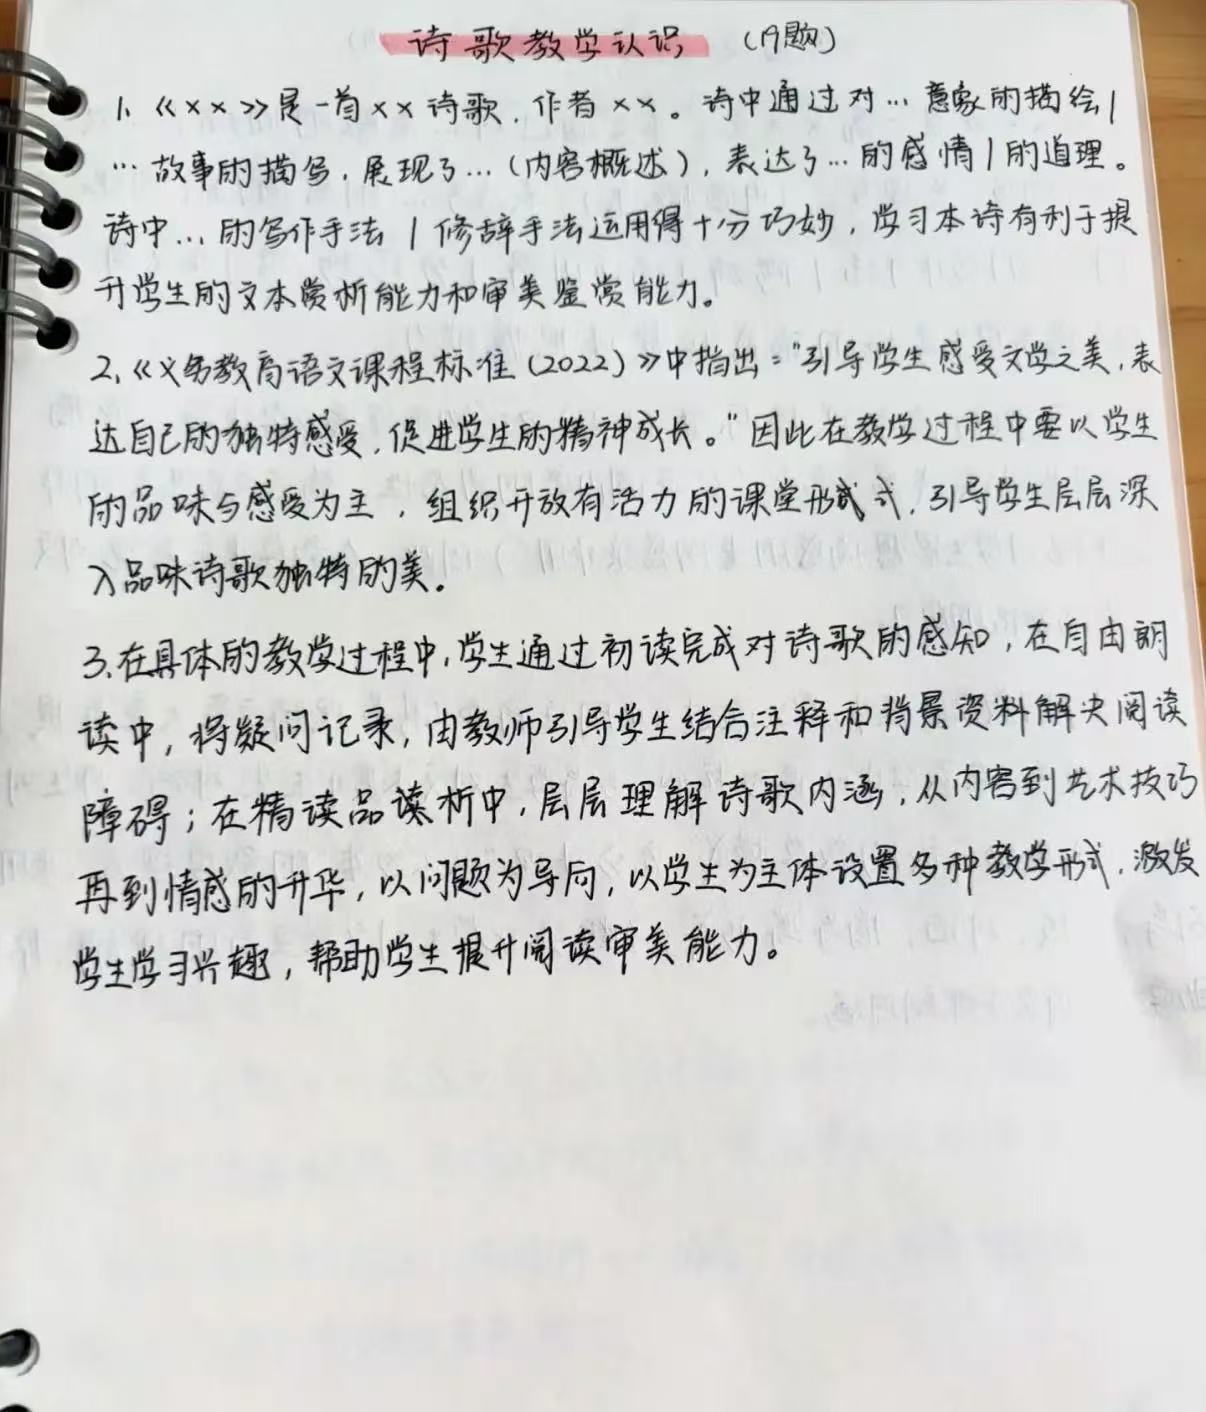 诗歌教学认识 (19题)
1、《××》是一首××诗歌，作者××。诗中通过对…意象的描绘/
…故事的描写，展现了…（内容概述），表达了…的感情/的道理。
诗中…的写作手法/修辞手法运用得十分巧妙，学习本诗有利于提
升学生的文本赏析能力和审美鉴赏能力。
2、《义务教育语文课程标准（2022）》中指出："引导学生感受文学之美，表
达自己的独特感受，促进学生的精神成长。"因此在教学过程中要以学生
的品味与感受为主，组织开放有活力的课堂形式式，引导学生层层深
入品味诗歌独特的美。
3、在具体的教学过程中，学生通过初读完成对诗歌的感知，在自由朗
读中，将疑问记录，由教师引导学生结合注释和背景资料解决阅读
障碍；在精读品读析中，层层理解诗歌内涵，从内容到艺术技巧
再到情感的升华，以问题为导向，以学生为主体设置多种教学形式，激发
学生学习兴趣，帮助学生提升阅读审美能力。